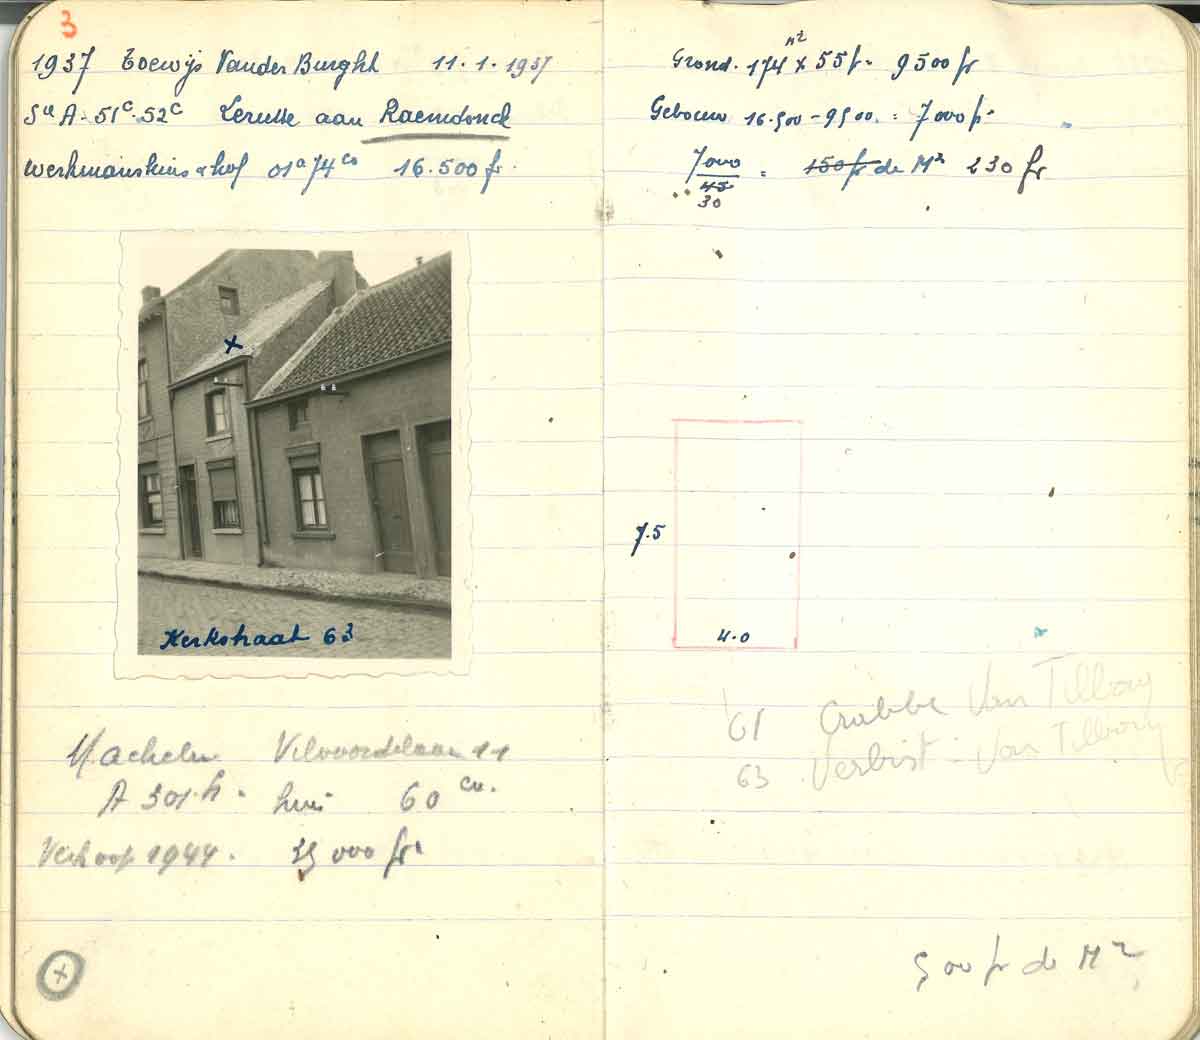 3
1937 Toewijs Vander Burght 11.1.1937
Sie A. 51c. 52c Lerutte aan Raemdonck
Werkmanshuis & hof 01a 74ca 16.500 fr.
Kerkstraat 63
Machelen Vilvoordelaan 11
A 301.h. huis 60 ca.
Verkoop 1944. 25 000 fr.
+
Grond. 174 M² x 55 fr = 9500 fr
Gebouw 16.500 - 9500. = 7000 fr.
7000 / 45 30 = 150 fr de M² 230 fr
7.5
4.0
61 Crabbe Van Tilborg
63 Verbist - Van Tilborg
500 fr de M²